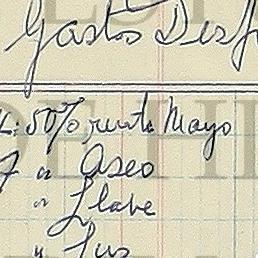 Gastos Desf
L: 50% renta Mayo
7 " Aseo
" Llave
" Luz